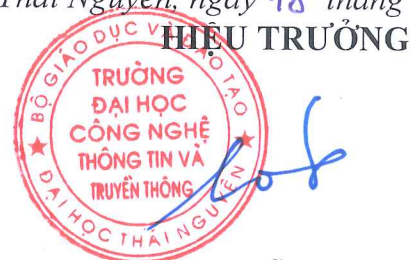 Thái Nguyên, ngày 18 tháng
HIỆU TRƯỞNG
BỘ GIÁO DỤC VÀ ĐÀO TẠO
TRƯỜNG
ĐẠI HỌC
CÔNG NGHỆ
THÔNG TIN VÀ
TRUYỀN THÔNG
ĐẠI HỌC THÁI NGUYÊN